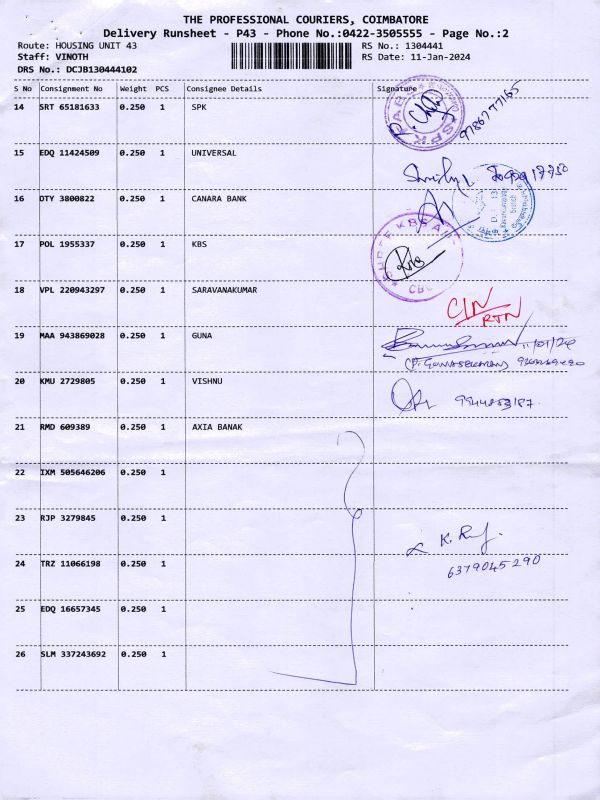 THE PROFESSIONAL COURIERS, COIMBATORE
Delivery Runsheet - P43 - Phone No.:0422-3505555 - Page No.:2
Route: HOUSING UNIT 43 RS No.: 1304441
Staff: VINOTH RS Date: 11-Jan-2024
DRS No.: DCJB130444102
S No Consignment No Weight PCS Consignee Details Signature
14 SRT 65181633 0.250 1 SPK
9786777165
15 EDQ 11424509 0.250 1 UNIVERSAL
16 DTY 3800822 0.250 1 CANARA BANK
17 POL 1955337 0.250 1 KBS
CBE
18 VPL 220943297 0.250 1 SARAVANAKUMAR
CIN
RTN
19 MAA 943869028 0.250 1 GUNA
11/01/24
(P. GUNASEKARAN)
20 KMU 2729805 0.250 1 VISHNU
21 RMD 609389 0.250 1 AXIA BANAK
22 IXM 505646206 0.250 1
23 RJP 3279845 0.250 1
K.
24 TRZ 11066198 0.250 1
6379045290
25 EDQ 16657345 0.250 1
26 SLM 337243692 0.250 1